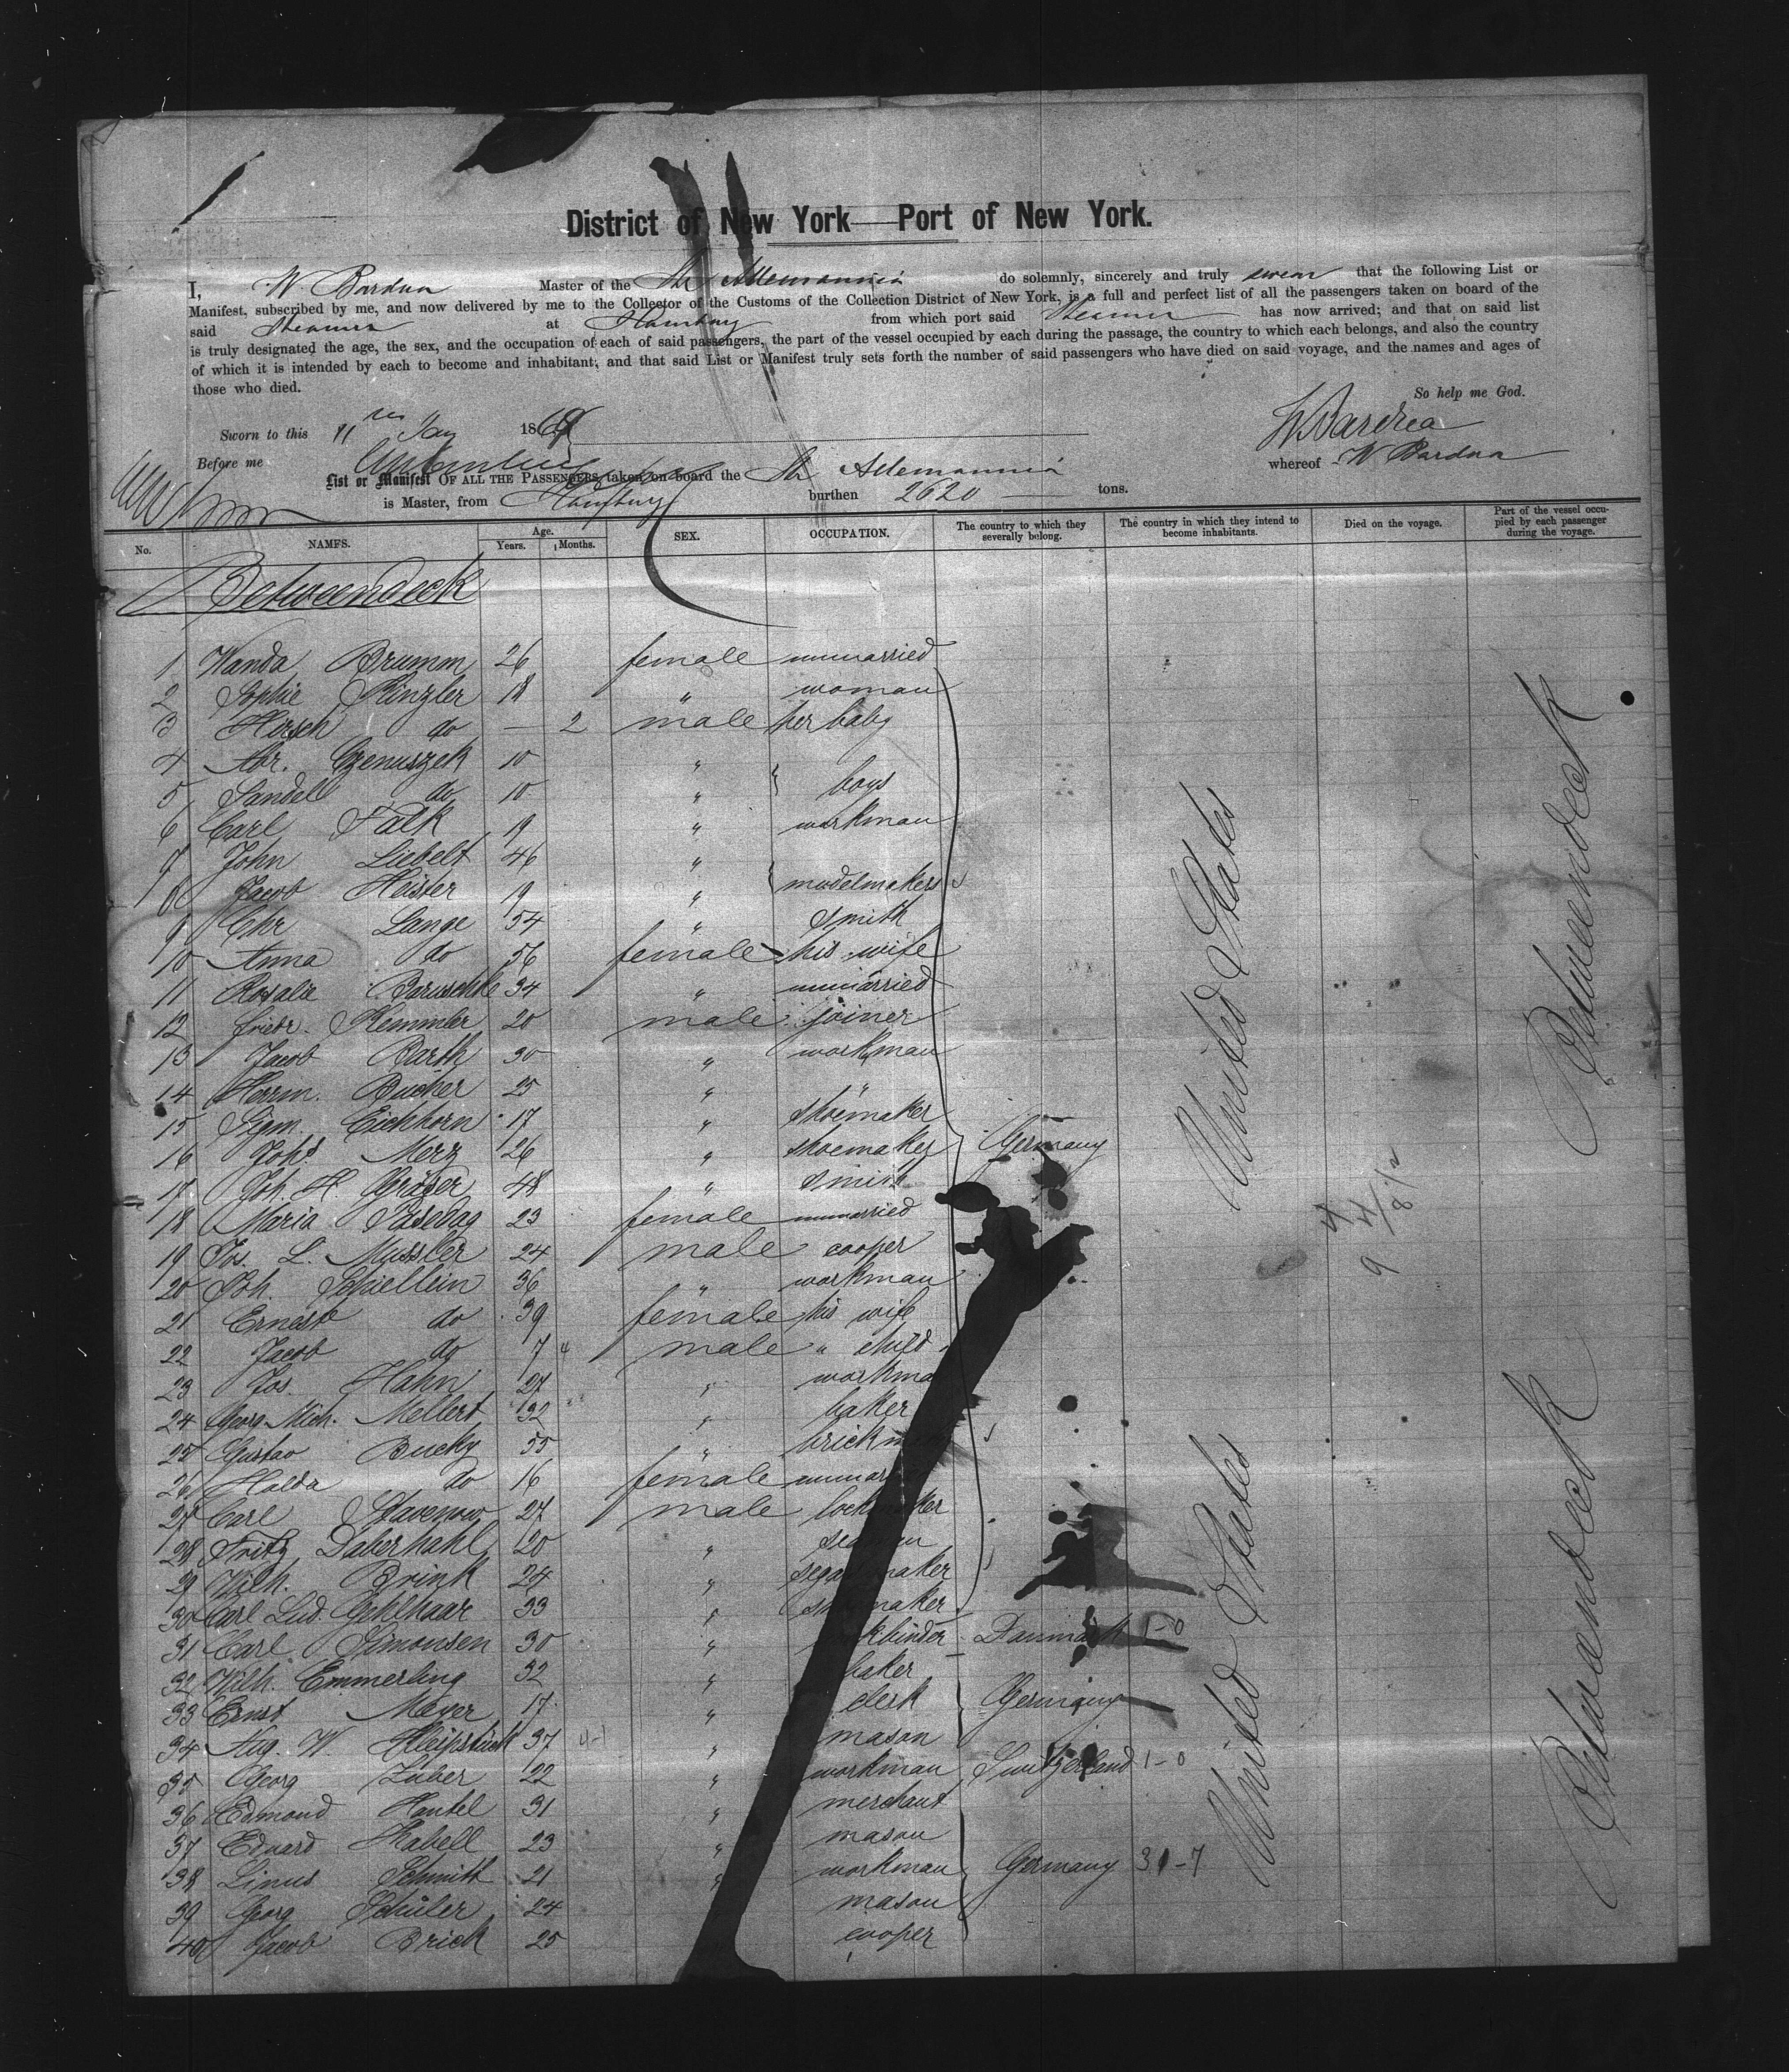 District of New York—Port of New York.
I, W Bardua Master of the Str Allemannia do solemnly, sincerely and truly swear that the following List or
Manifest, subscribed by me, and now delivered by me to the Collector of the Customs of the Collection District of New York, is a full and perfect list of all the passengers taken on board of the
said Steamer at Hamburg from which port said Steamer has now arrived; and that on said list
is truly designated the age, the sex, and the occupation of each of said passengers, the part of the vessel occupied by each during the passage, the country to which each belongs, and also the country
of which it is intended by each to become and inhabitant; and that said List or Manifest truly sets forth the number of said passengers who have died on said voyage, and the names and ages of
those who died.
So help me God.
Sworn to this 11 Jan 1869
W Bardua
Before me
List or Manifest OF ALL THE PASSENGERS taken on board the Str Allemannia whereof W Bardua
is Master, from Hamburg burthen 2620 tons.
No. NAMES. Age. Years. Months. SEX. OCCUPATION. The country to which they severally belong. The country in which they intend to become inhabitants. Died on the voyage. Part of the vessel occupied by each passenger during the voyage.
Betweendeck
1 Wanda Brumm 26 female unmarried
2 Sophie Kinzler 18 " woman
3 Hirsch do — 2 male her baby
4 Abr. Czenuszek 10 "
5 Sandell do 10 " boys
6 Carl Falk 19 " workman
7 John Liebelt 46 "
8 Jacob Heister 19 " modelmakers
9 Chr Lange 54 " smith
10 Anna do 56 female his wife
11 Rosalie Baruschke 34 " unmarried
12 Friedr. Kemmler 20 male joiner
13 Jacob Barth 30 " workman
14 Herrm. Bucher 25 " "
15 Sigm. Eichhorn 17 " shoemaker
16 Johs Merz 26 " shoemaker Germany
17 Joh. H. Gräser 48 " smith
18 Maria Pasedag 23 female unmarried
19 Jos. L. Mussler 24 male cooper
20 Joh. Schiellein 36 " workman
21 Ernest do 39 female his wife
22 Jacob do 7 male " child
23 Jos. Hahn 27 " workma
24 Georg Mich. Mellert 32 " baker
25 Gustav Bucky 55 "
26 Halda do 16 female
27 Carl Stavenow 27 male lockmaker
28 Fritz Daberhahl 20 "
29 Wilh. Brink 24 " segarmaker
30 Carl Lud. Gehlhaar 33 "
31 Carl Simonsen 30 " Danmark 1-0
32 Wilh. Emmerling 32 " baker
33 Ernst Meyer 17 " clerk Germany
34 Aug. W. 37 " mason
35 Georg Zuber 22 " workman Switzerland 1-0
36 Edmond Hantel 31 " merchant
37 Eduard Habell 23 " mason
38 Linus Schmith 21 " workman Germany 31-7
39 Georg Schüler 24 mason
40 Jacob Brick 25 cooper
United States
United States
Betweendeck
Betweendeck